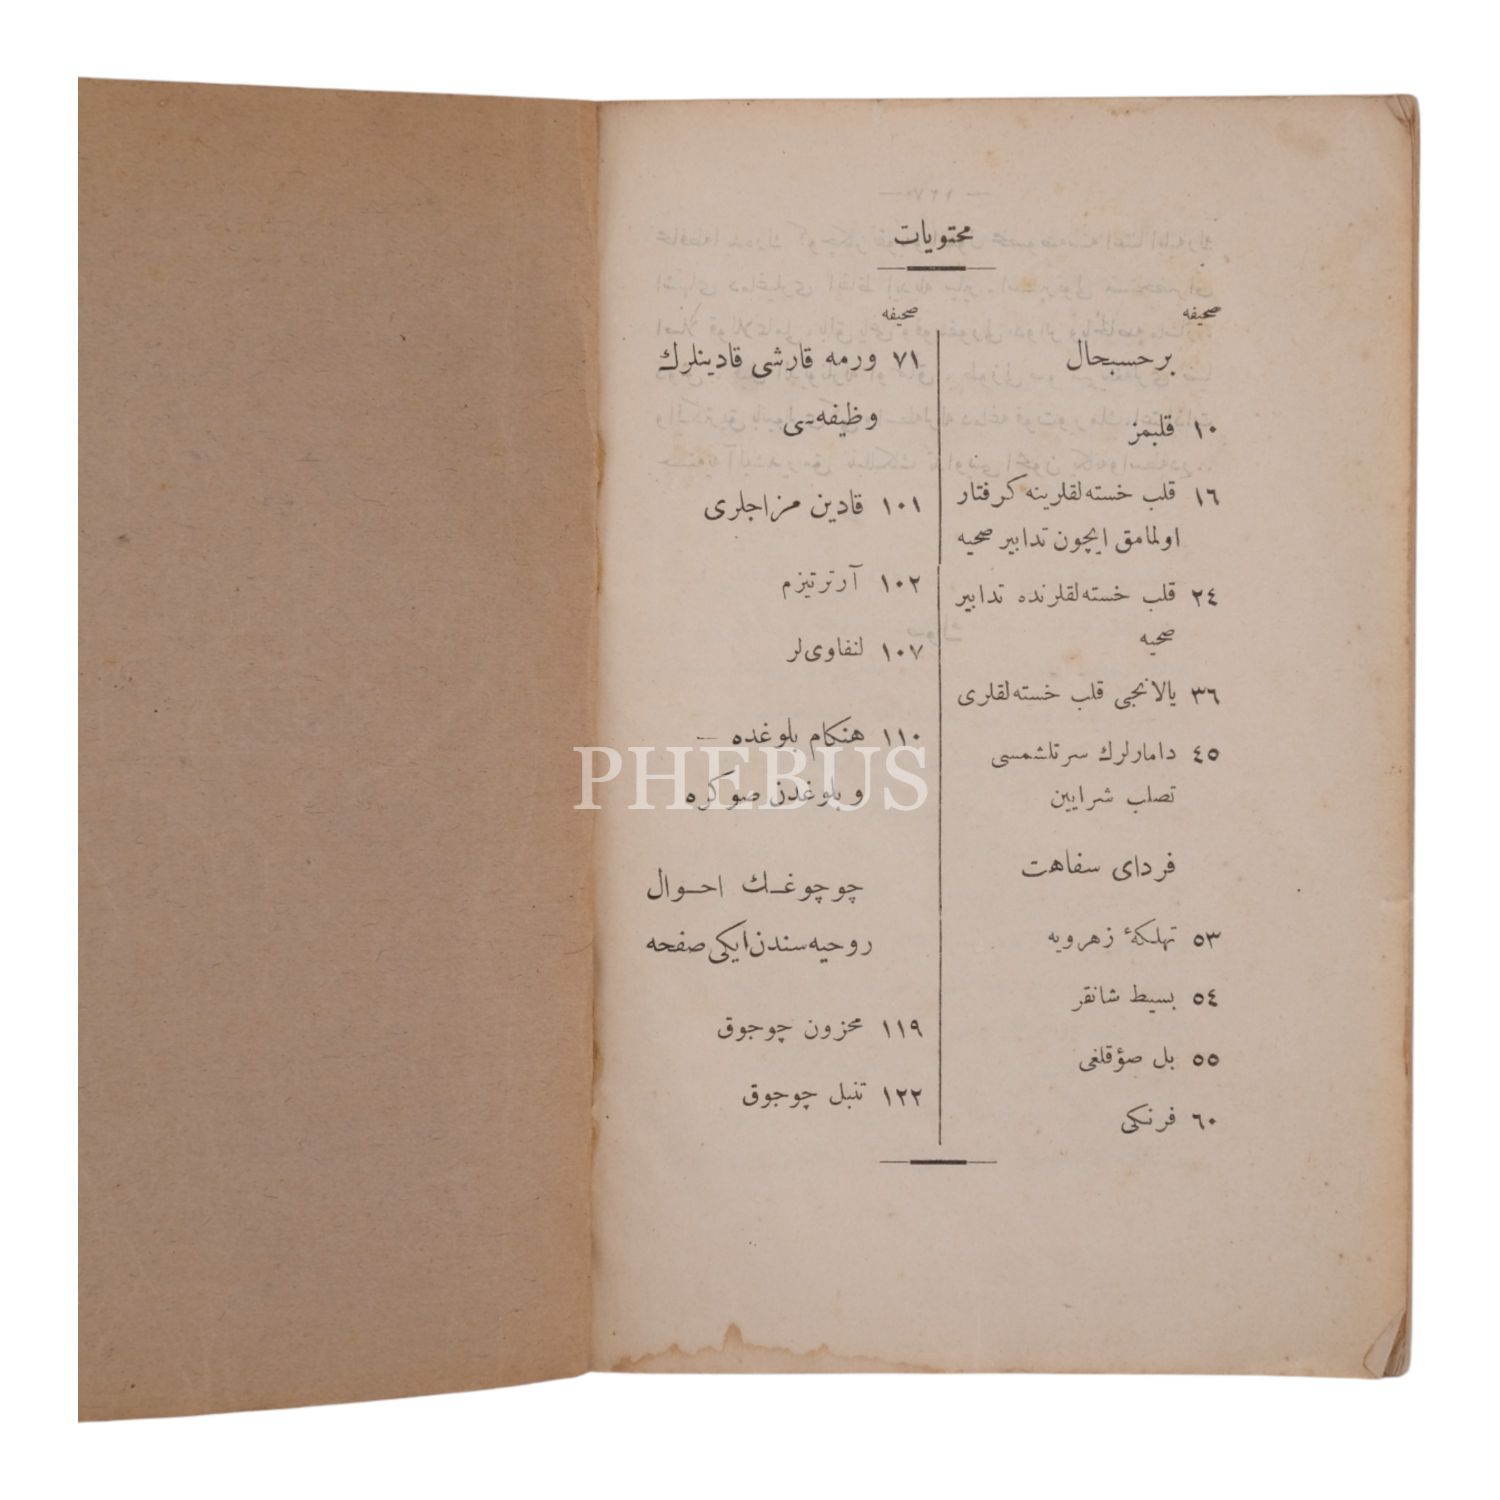 محتویات
صحیفه
بر حسبحال
١٠ قلبمز
١٦ قلب خسته‌لقلرینه کرفتار
اولمامق ایچون تدابیر صحیه
٢٤ قلب خسته‌لقلرنده تدابیر
صحیه
٣٦ یالانجی قلب خسته‌لقلری
٤٥ دامارلرك سرتلشمسی
تصلب شرایین
فردای سفاهت
٥٣ تهلکهٔ زهرویه
٥٤ بسیط شانقر
٥٥ بل صؤقلغی
٦٠ فرنکی
صحیفه
٧١ ورمه قارشی قادینلرك
وظیفه‌سی
١٠١ قادین مزاجلری
١٠٢ آرترتیزم
١٠٧ لنفاوی‌لر
١١٠ هنکام بلوغده —
و بلوغدن صوکره
چوچوغك احوال
روحیه‌سندن ایکی صفحه
١١٩ محزون چوجوق
١٢٢ تنبل چوجوق
PHEBUS